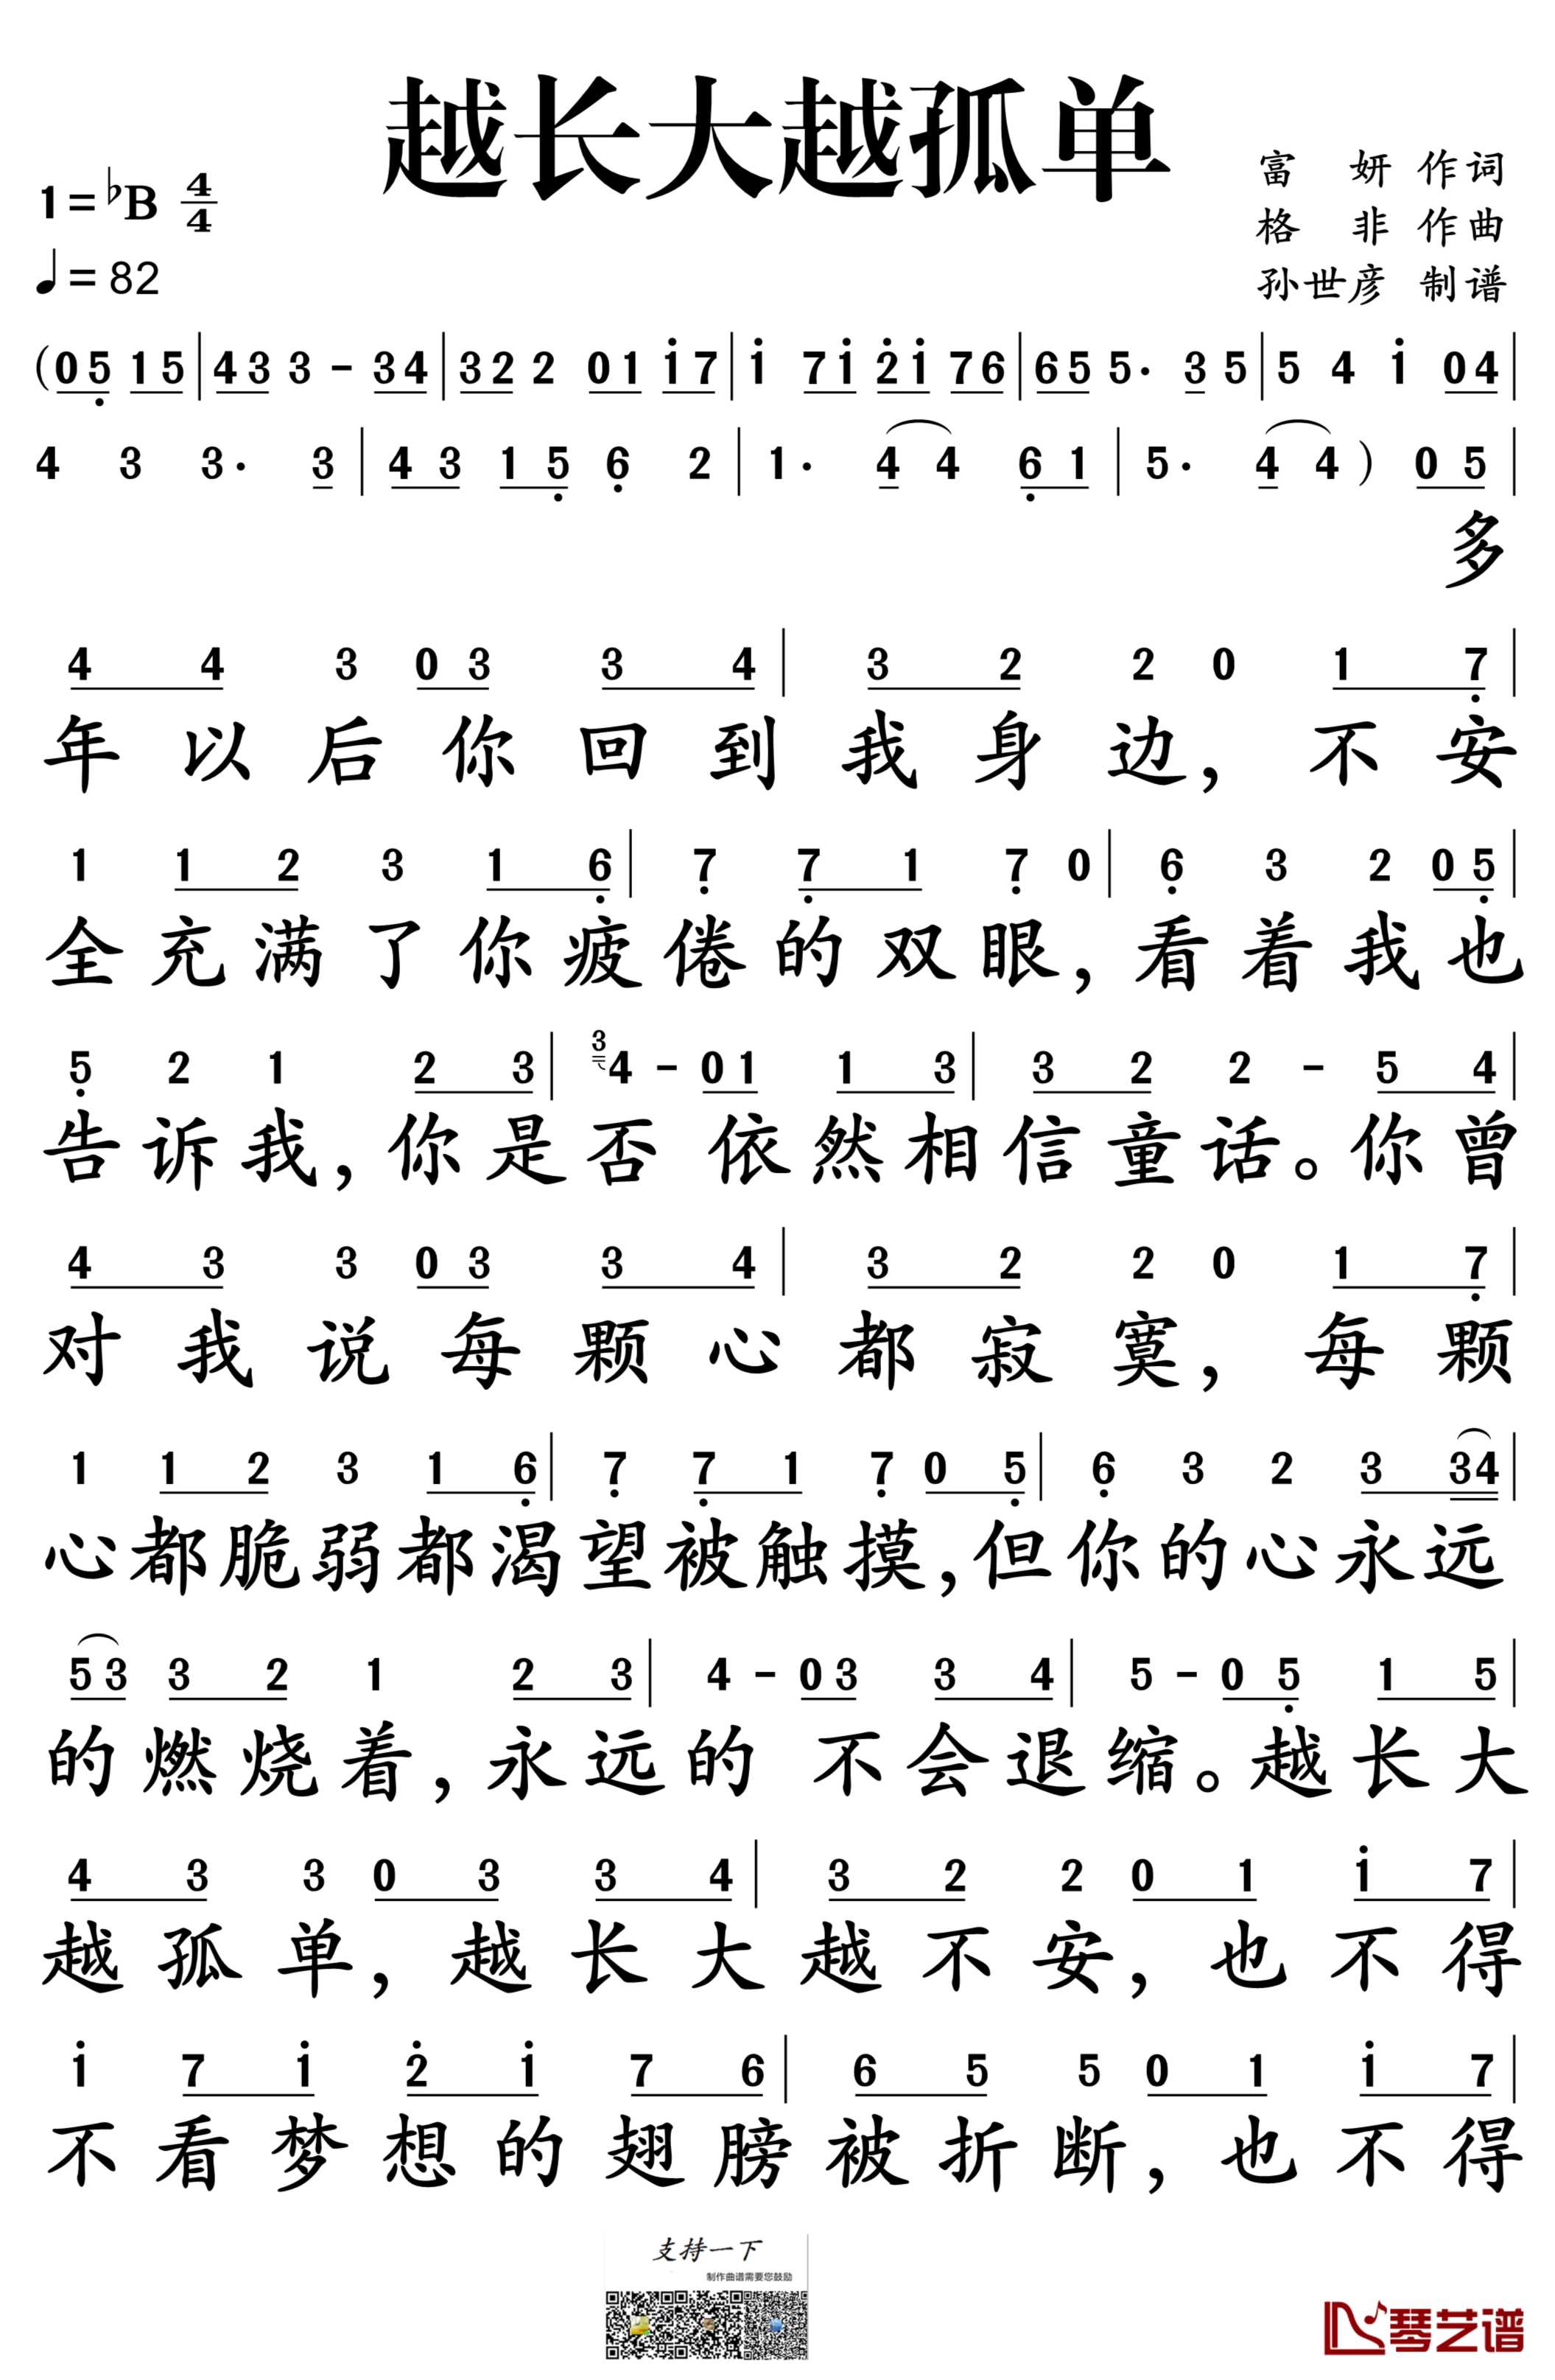 越长大越孤单
富 妍 作词
1=♭B 4/4
格 非 作曲
♩=82
孙世彦 制谱
(05 15|433-34|322 01 i7|i 7i 2̇i 76|655· 35|5 4 i 04|
4 3 3· 3|43 15 6 2|1· 4 4 61|5· 4 4) 05|
多
4 4 3 03 3 4|3 2 2 0 1 7|
年以后你回到我身边,不安
1 1 2 3 1 6|7 7 1 7 0|6 3 2 05|
全充满了你疲倦的双眼,看着我也
5 2 1 2 3|3 4-01 1 3|3 2 2 - 5 4|
告诉我,你是否依然相信童话。你曾
4 3 3 03 3 4|3 2 2 0 1 7|
对我说每颗心都寂寞,每颗
1 1 2 3 1 6|7 7 1 7 0 5|6 3 2 3 34|
心都脆弱都渴望被触摸,但你的心永远
53 3 2 1 2 3|4-03 3 4|5-05 1 5|
的燃烧着,永远的不会退缩。越长大
4 3 3 0 3 3 4|3 2 2 0 1 i 7|
越孤单,越长大越不安,也不得
i 7 i 2̇ i 7 6|6 5 5 0 1 i 7|
不看梦想的翅膀被折断,也不得
支持一下
制作曲谱需要您鼓励
琴艺谱